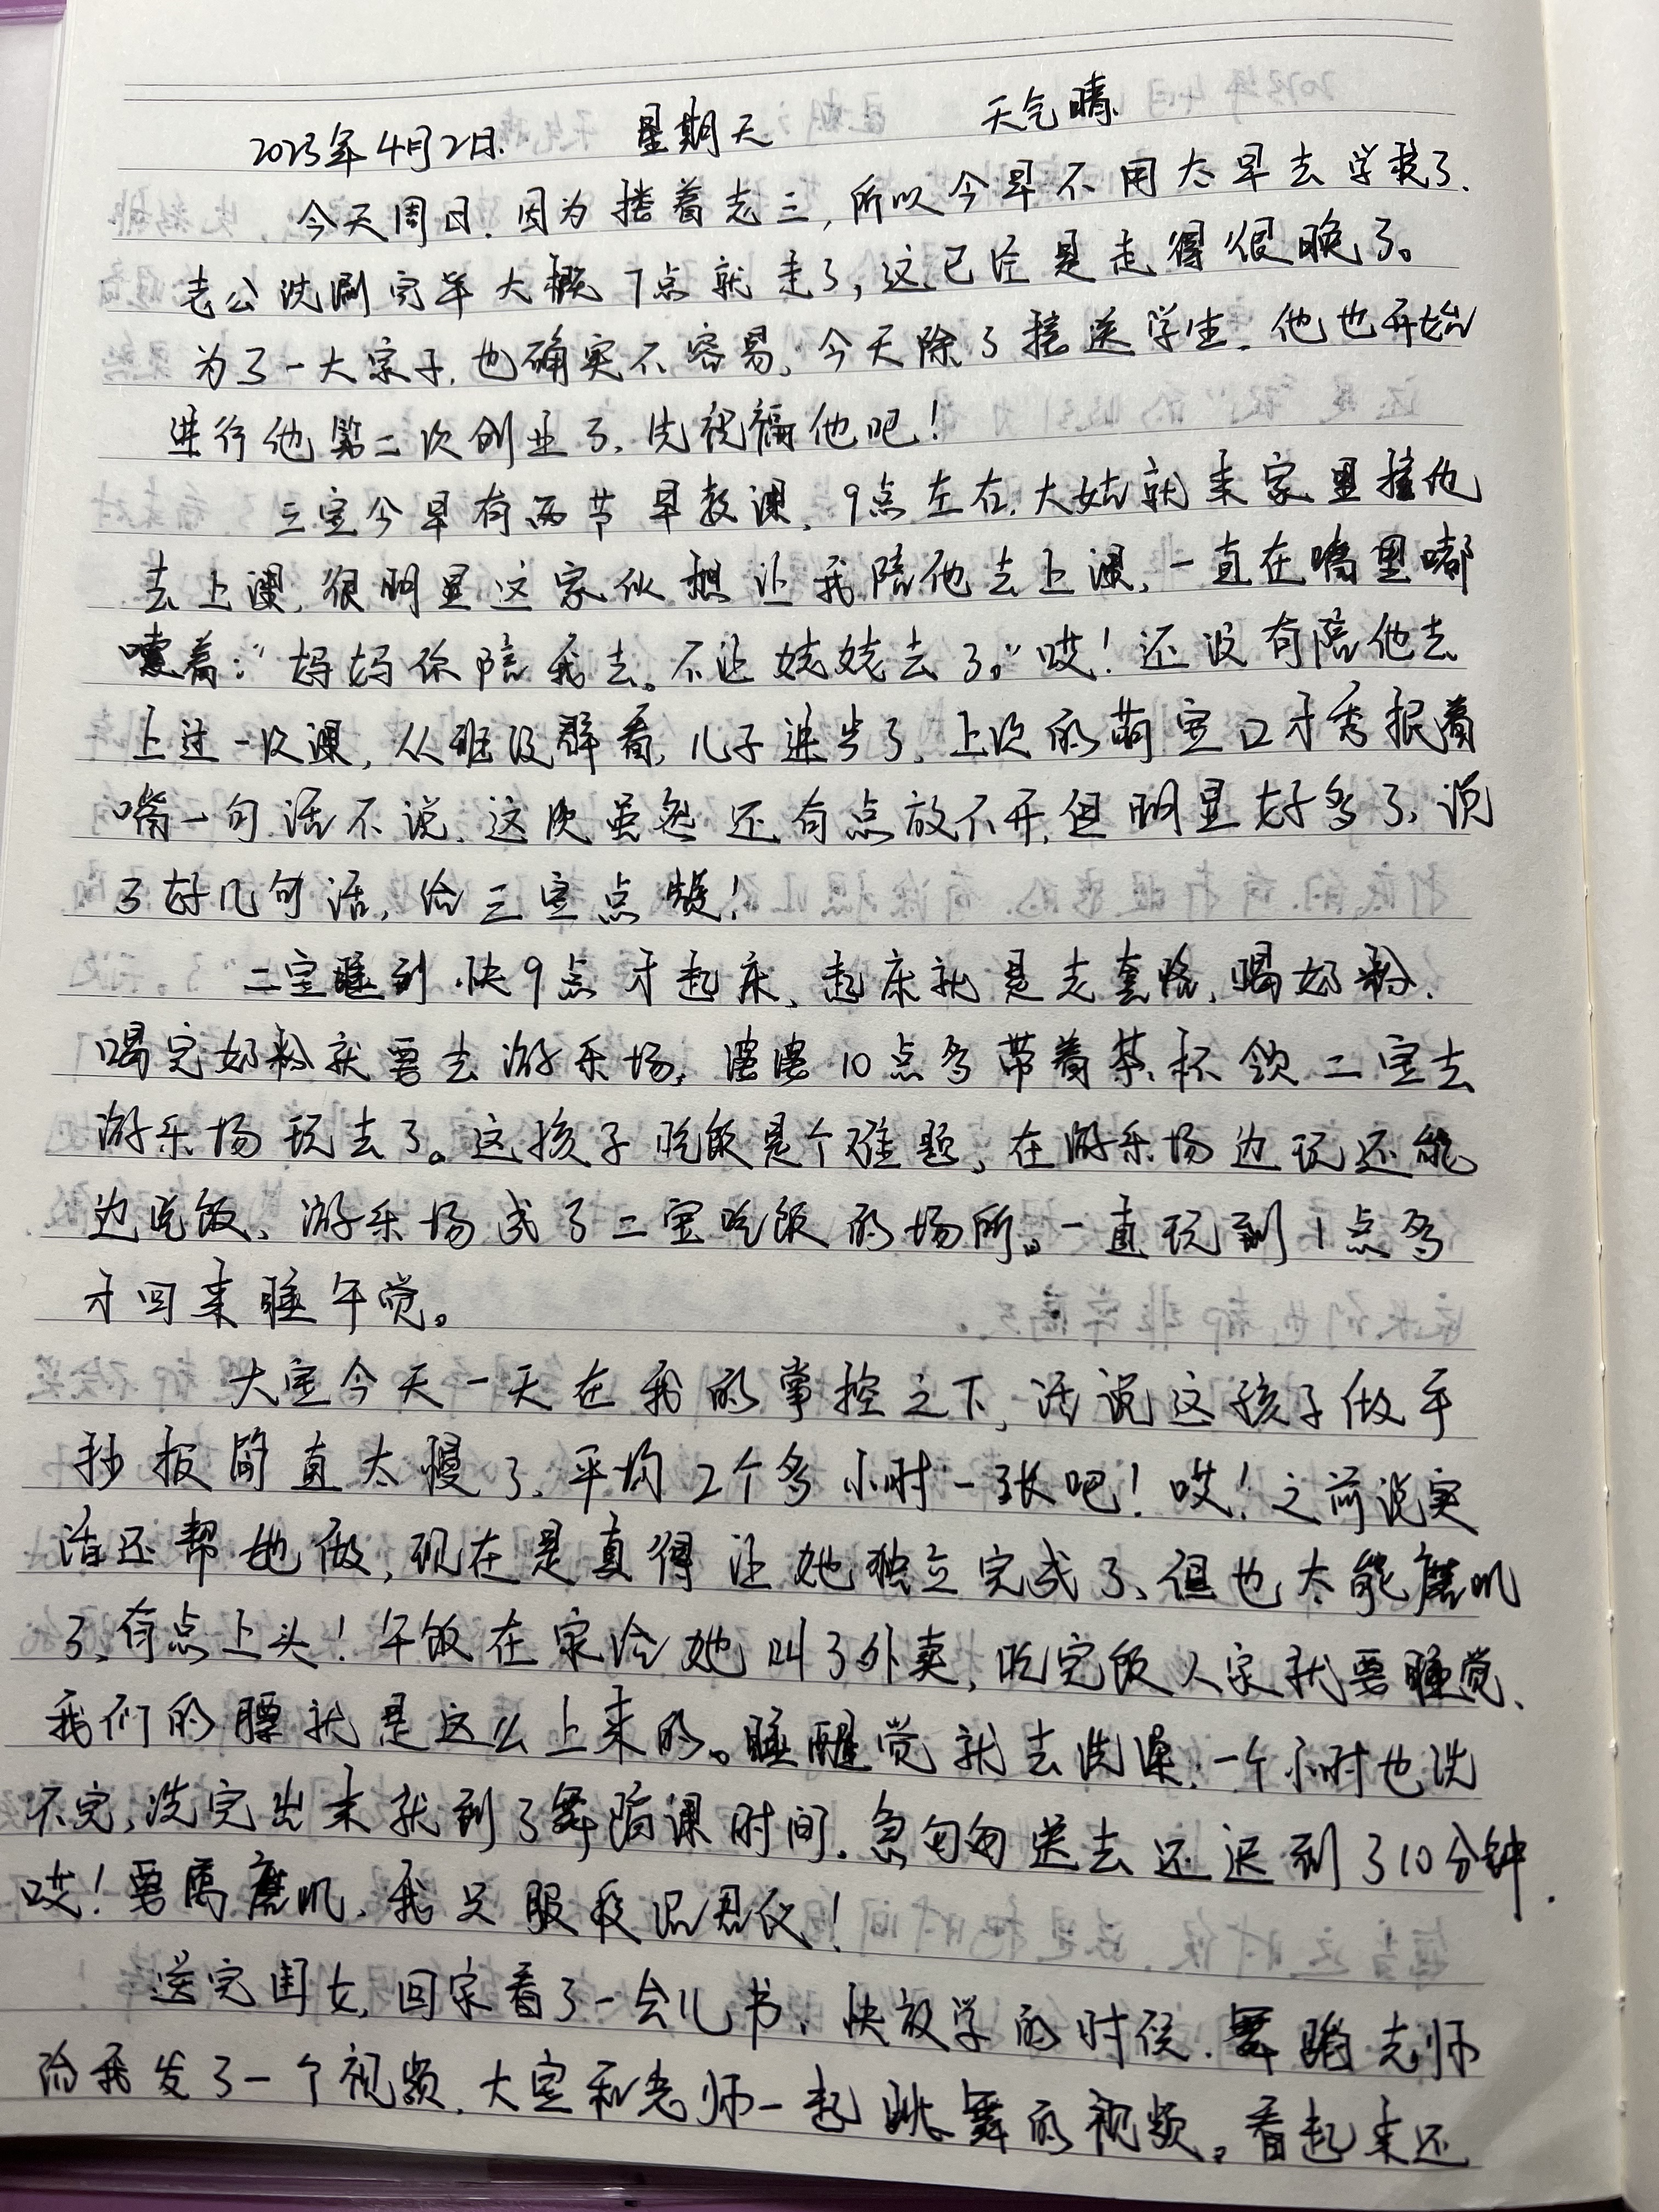 2023年4月2日. 星期天 天气晴.
今天周日.因为接着志三,所以今早不用太早去学校了.
老公洗涮完毕大概7点就走了,这已经是走得很晚了。
为了一大家子,也确实不容易,今天除了接送学生,他也开始
进行他第二次创业了,先祝福他吧!
三宝今早有两节早教课,9点左右,大姑就来家里接他
去上课,很明显这家伙想让我陪他去上课,一直在嘴里嘟
囔着:“妈妈你陪我去。不让姥姥去了。”哎!还没有陪他去
上过一次课,从班级群看,儿子进步了,上次的萌宝口才秀抿着
嘴一句话不说,这次虽然还有点放不开,但明显好多了,说
了好几句话,给三宝点赞!
二宝睡到快9点才起床,起床就是老套路,喝奶粉,
喝完奶粉就要去游乐场,婆婆10点多带着茶杯领二宝去
游乐场玩去了。这孩子吃饭是个难题,在游乐场边玩还能
边吃饭、游乐场成了二宝吃饭的场所。一直玩到1点多
才回来睡午觉。
大宝今天一天在我的掌控之下,话说这孩子做手
抄报简直太慢了,平均2个多小时一张吧!哎!之前说实
话还帮她做,现在是真得让她独立完成了,但也太能磨叽
了,有点上头!午饭在家给她叫了外卖,吃完饭人家就要睡觉、
我们的膘就是这么上来的。睡醒觉就去洗澡,一个小时也洗
不完,洗完出来就到了舞蹈课时间.急匆匆送去还迟到了10分钟.
哎!要属磨叽,我只服段君仪!
送完闺女,回家看了一会儿书,快放学的时侯.舞蹈老师
给我发了一个视频,大宝和老师一起跳舞的视频,看起来还